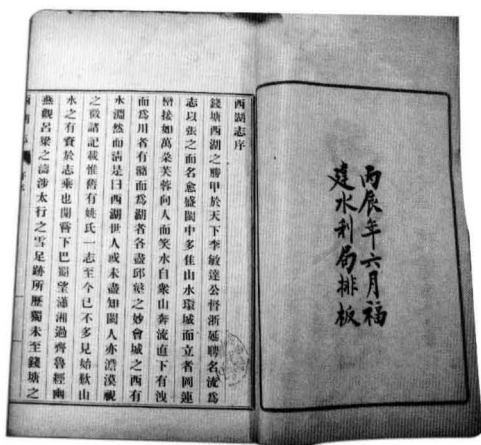 丙辰年六月福
建水利局排板
西湖志序
錢塘西湖之勝甲於天下李敏達公督浙延聘名流爲
志以張之而名愈盛閩中多佳山水環城而立者岡連
嶺接如萬朶芙蓉向人而笑水自衆山奔流直下有洩
而爲川者有瀦而爲湖者各盡邱壑之妙會城之西有
水淵然而清是曰西湖世人或未盡知閩人亦澹漠視
之徵諸記載惟舊有姚氏一志至今已不多見始歎山
水之有資於志乘也閩嘗下巴蜀望瀟湘過齊魯經幽
燕觀呂梁之濤涉太行之雪足跡所歷獨未至錢塘之